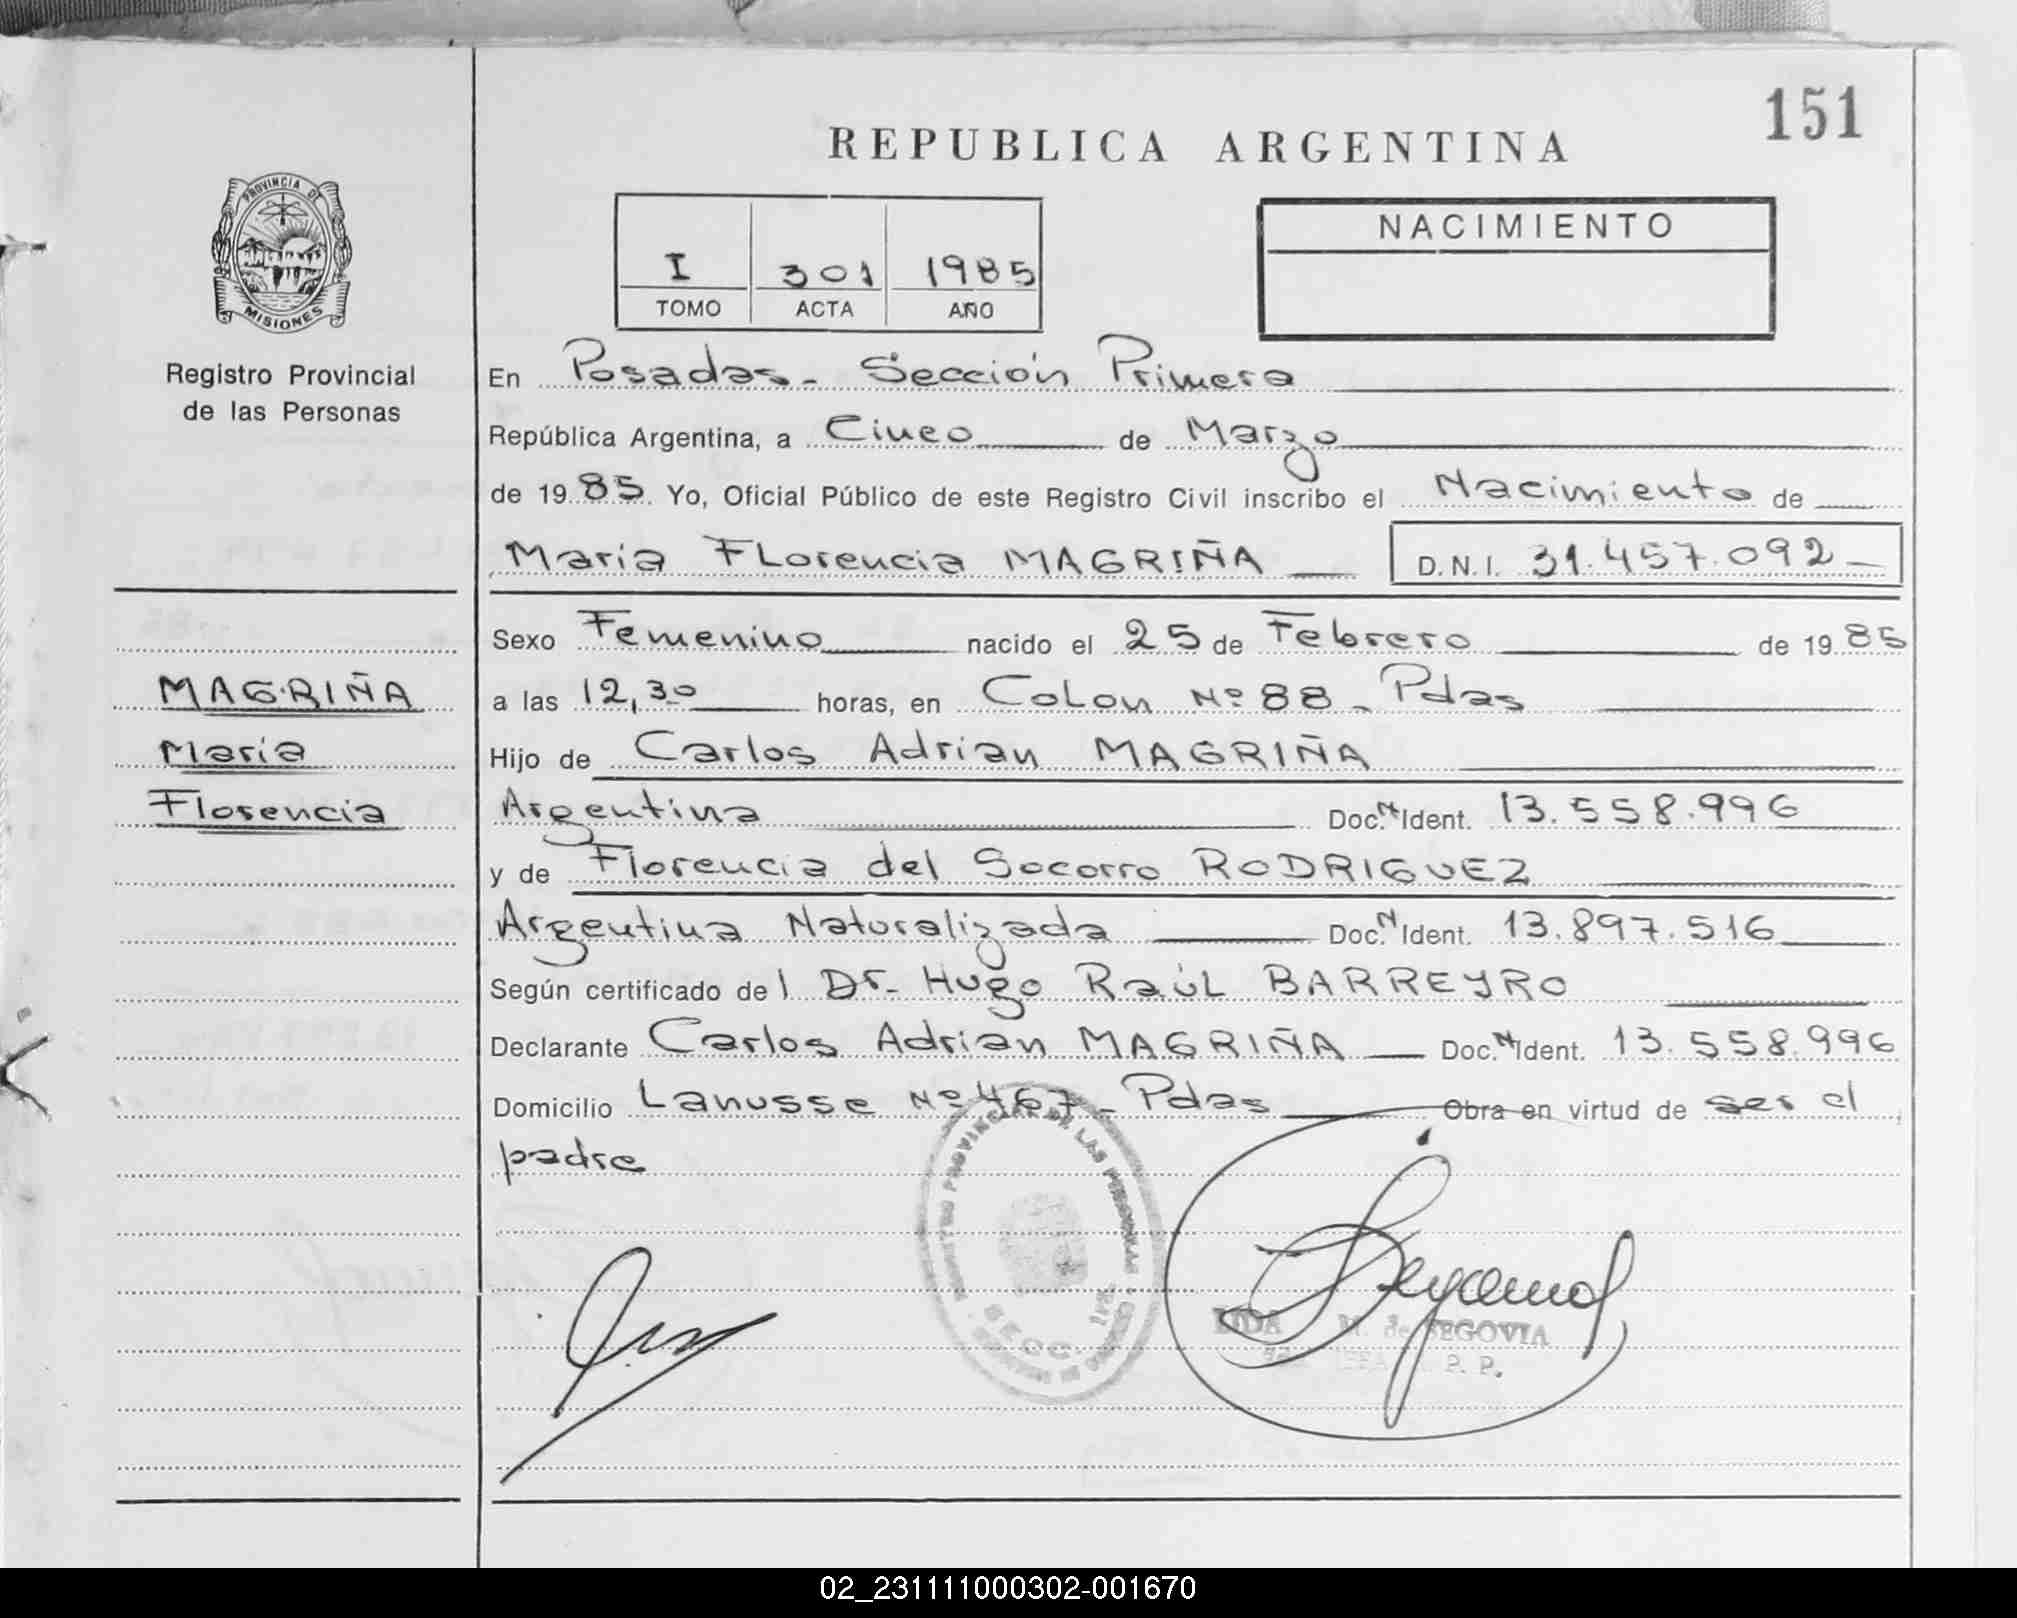 151
REPUBLICA ARGENTINA
PROVINCIA DE
MISIONES
Registro Provincial
de las Personas
I 301 1985
TOMO ACTA AÑO
NACIMIENTO
En Posadas - Sección Primera
República Argentina, a Cinco de Marzo
de 1985. Yo, Oficial Público de este Registro Civil inscribo el Nacimiento de
María Florencia MAGRIÑA D.N.I. 31.457.092
Sexo Femenino nacido el 25 de Febrero de 1985
MAGRIÑA
María
Florencia
a las 12,30 horas, en Colon Nº 88 - Pdas
Hijo de Carlos Adrian MAGRIÑA
Argentina Doc. N. Ident. 13.558.996
y de Florencia del Socorro RODRIGUEZ
Argentina Naturalizada Doc. N. Ident. 13.897.516
Según certificado del Dr. Hugo Raúl BARREYRO
Declarante Carlos Adrian MAGRIÑA Doc. N. Ident. 13.558.996
Domicilio Lanusse Nº 467 - Pdas Obra en virtud de ser el
padre
REGISTRO PROVINCIAL DE LAS PERSONAS
SECC. 1ra.
LIDA M. de SEGOVIA
R. P. P.
02_231111000302-001670